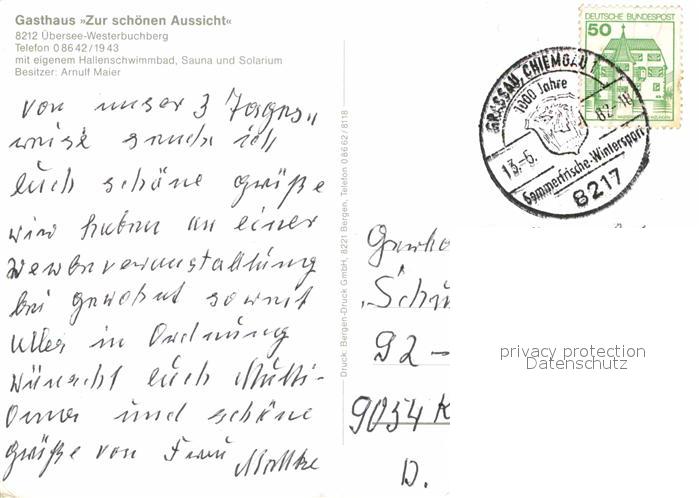 Gasthaus »Zur schönen Aussicht«
8212 Übersee-Westerbuchberg
Telefon 0 86 42 / 19 43
mit eigenem Hallenschwimmbad, Sauna und Solarium
Besitzer: Arnulf Maier
von unser 3 Tages„
reise sende ich
Euch schöne grüße
wird haben an einer
Werbeveranstaltung
bei gewohnt soweit
Alles in Ordnung
wünscht Euch Mutti-
Oma und schöne
grüße von Frau
Druck: Bergen-Druck GmbH, 8221 Bergen, Telefon 0 86 62 / 8118
DEUTSCHE BUNDESPOST
50
GRASSAU, CHIEMGAU 1
1000 Jahre
13.-5. 82-18
Sommerfrische-Wintersport
8217
92 -
9054 K
D.
privacy protection
Datenschutz